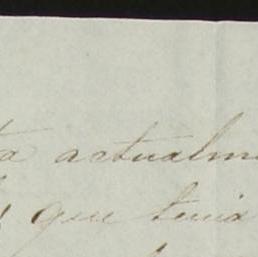 ta actualm
que tenia